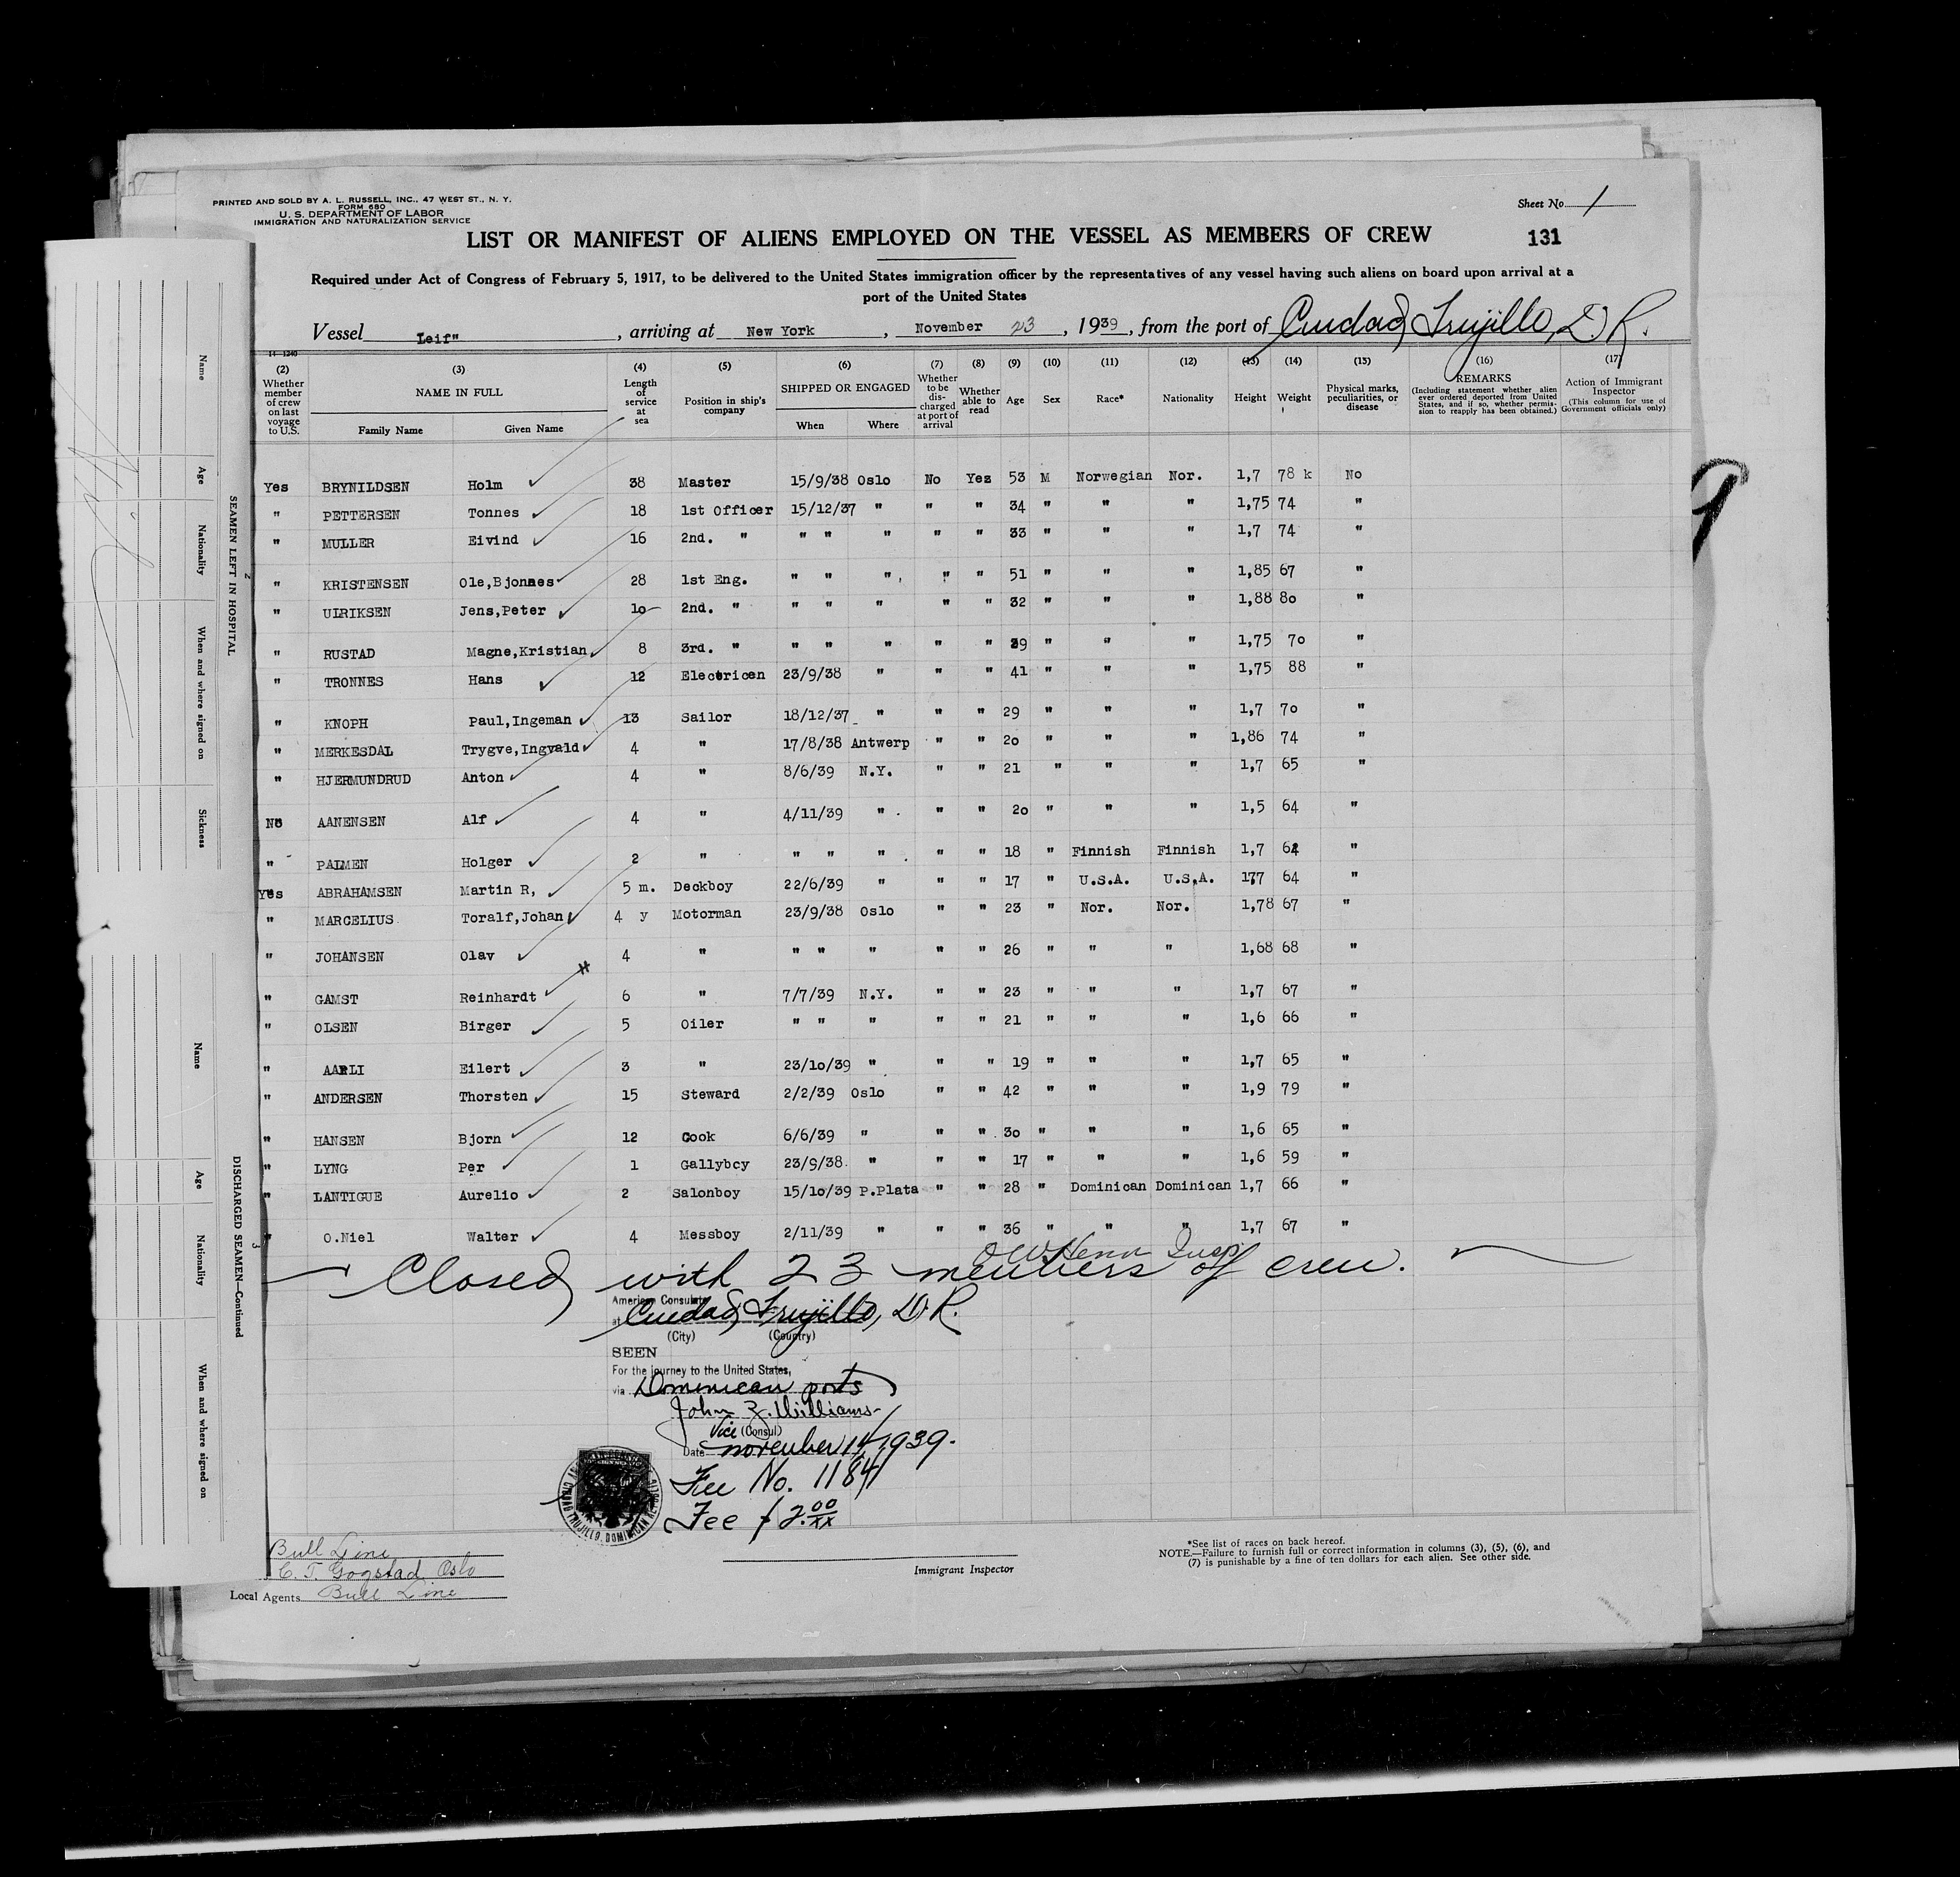 PRINTED AND SOLD BY A. L. RUSSELL, INC., 47 WEST ST., N. Y.
FORM 680
U. S. DEPARTMENT OF LABOR
IMMIGRATION AND NATURALIZATION SERVICE
Sheet No. 1
LIST OR MANIFEST OF ALIENS EMPLOYED ON THE VESSEL AS MEMBERS OF CREW 131
Required under Act of Congress of February 5, 1917, to be delivered to the United States immigration officer by the representatives of any vessel having such aliens on board upon arrival at a
port of the United States
Vessel Leif", arriving at New York, November 23, 1939, from the port of Ciudad Trujillo, D.R.
14-1240
(2) Whether member of crew on last voyage to U.S. (3) NAME IN FULL Family Name Given Name (4) Length of service at sea (5) Position in ship's company (6) SHIPPED OR ENGAGED When Where (7) Whether to be discharged at port of arrival (8) Whether able to read (9) Age (10) Sex (11) Race* (12) Nationality (13) Height (14) Weight (15) Physical marks, peculiarities, or disease (16) REMARKS (Including statement whether alien ever ordered deported from United States, and if so, whether permission to reapply has been obtained.) (17) Action of Immigrant Inspector (This column for use of Government officials only)
Yes BRYNILDSEN Holm 38 Master 15/9/38 Oslo No Yes 53 M Norwegian Nor. 1,7 78 k No
" PETTERSEN Tonnes 18 1st Officer 15/12/37 " " " 34 " " " 1,75 74 "
" MULLER Eivind 16 2nd. " " " " " " 33 " " " 1,7 74 "
" KRISTENSEN Ole,Bjonnes 28 1st Eng. " " " " " 51 " " " 1,85 67 "
" ULRIKSEN Jens,Peter 10 2nd. " " " " " " 32 " " " 1,88 80 "
" RUSTAD Magne,Kristian 8 3rd. " " " " " " 29 " " " 1,75 70 "
" TRONNES Hans 12 Electricen 23/9/38 " " " 41 " " " 1,75 88 "
" KNOPH Paul,Ingeman 13 Sailor 18/12/37 " " " 29 " " " 1,7 70 "
" MERKESDAL Trygve,Ingvald 4 " 17/8/38 Antwerp " " 20 " " " 1,86 74 "
" HJERMUNDRUD Anton 4 " 8/6/39 N.Y. " " 21 " " " 1,7 65 "
No AANENSEN Alf 4 " 4/11/39 " " " 20 " " " 1,5 64 "
" PALMEN Holger 2 " " " " " " 18 " Finnish Finnish 1,7 64 "
Yes ABRAHAMSEN Martin R, 5 m. Deckboy 22/6/39 " " " 17 " U.S.A. U.S.A. 177 64 "
" MARCELIUS Toralf,Johan 4 y Motorman 23/9/38 Oslo " " 23 " Nor. Nor. 1,78 67 "
" JOHANSEN Olav 4 " " " " " " 26 " " " 1,68 68 "
" GAMST Reinhardt 6 " 7/7/39 N.Y. " " 23 " " " 1,7 67 "
" OLSEN Birger 5 Oiler " " " " " 21 " " " 1,6 66 "
" AARLI Eilert 3 " 23/10/39 " " " 19 " " " 1,7 65 "
" ANDERSEN Thorsten 15 Steward 2/2/39 Oslo " " 42 " " " 1,9 79 "
" HANSEN Bjorn 12 Cook 6/6/39 " " " 30 " " " 1,6 65 "
" LYNG Per 1 Gallyboy 23/9/38 " " " 17 " " " 1,6 59 "
" LANTIGUE Aurelio 2 Salonboy 15/10/39 P.Plata " " 28 " Dominican Dominican 1,7 66 "
" O.Niel Walter 4 Messboy 2/11/39 " " " 36 " " " 1,7 67 "
Closed with 23 members of crew.
American Consulate
at Ciudad Trujillo, D.R.
(City) (Country)
SEEN
For the journey to the United States,
via Dominican ports
John Z. Williams
Vice (Consul)
Date November 14, 1939.
Fee No. 1184
Fee $2.00/xx
Bull Line
C. T. Gogstad, Oslo
Local Agents Bull Line
Immigrant Inspector
*See list of races on back hereof.
NOTE.—Failure to furnish full or correct information in columns (3), (5), (6), and
(7) is punishable by a fine of ten dollars for each alien. See other side.
SEAMEN LEFT IN HOSPITAL
2
Name Age Nationality When and where signed on Sickness
DISCHARGED SEAMEN—Continued
3
Name Age Nationality When and where signed on